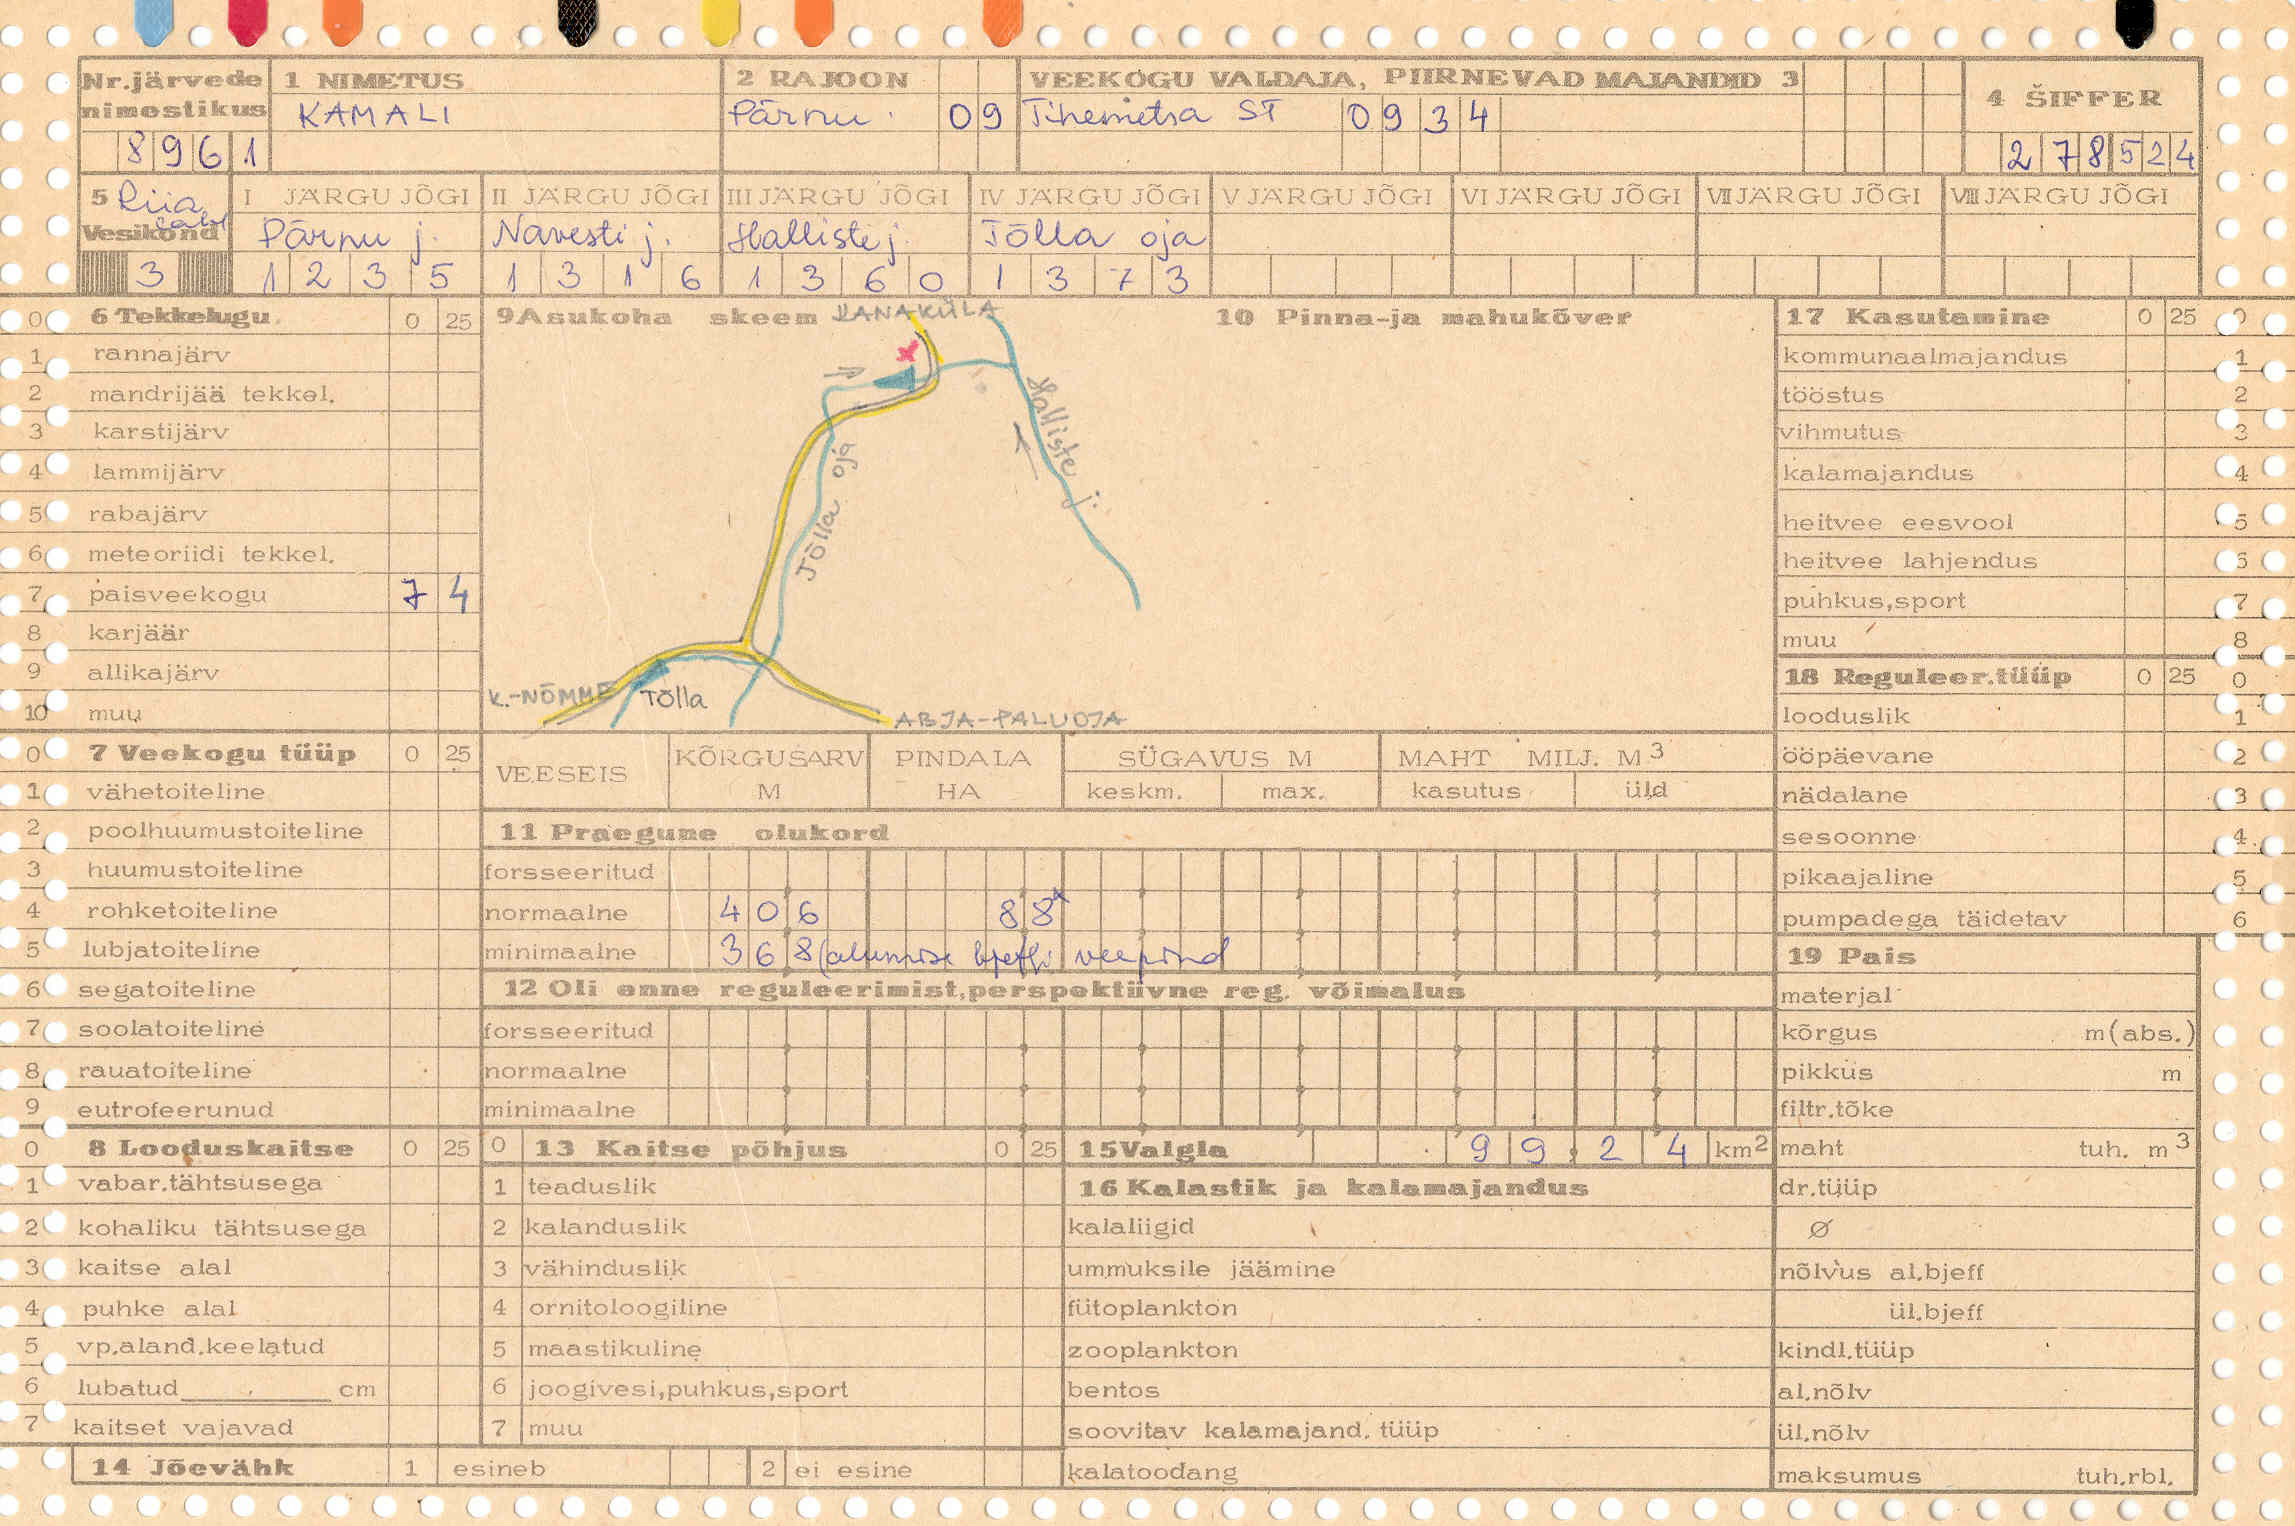 Nr.järvede nimestikus 1 NIMETUS 2 RAJOON VEEKOGU VALDAJA, PIIRNEVAD MAJANDID 3 4 ŠIFFER
KAMALI Pärnu 09 Tihemetsa ST 0934
8961 278524
5 Riia laht Vesikond I JÄRGU JÕGI II JÄRGU JÕGI III JÄRGU JÕGI IV JÄRGU JÕGI V JÄRGU JÕGI VI JÄRGU JÕGI VII JÄRGU JÕGI VIII JÄRGU JÕGI
Pärnu j. Navesti j. Halliste j. Tõlla oja
3 1235 1316 1360 1373
0 6 Tekkelugu 0 25
1 rannajärv
2 mandrijää tekkel.
3 karstijärv
4 lammijärv
5 rabajärv
6 meteoriidi tekkel.
7 paisveekogu 7 4
8 karjäär
9 allikajärv
10 muu
0 7 Veekogu tüüp 0 25
1 vähetoiteline
2 poolhuumustoiteline
3 huumustoiteline
4 rohketoiteline
5 lubjatoiteline
6 segatoiteline
7 soolatoiteline
8 rauatoiteline
9 eutrofeerunud
0 8 Looduskaitse 0 25
1 vabar.tähtsusega
2 kohaliku tähtsusega
3 kaitse alal
4 puhke alal
5 vp.aland.keelatud
6 lubatud cm
7 kaitset vajavad
14 Jõevähk 1 esineb 2 ei esine
9 Asukoha skeem
KANAKÜLA
Halliste j.
Tõlla oja
K.-NÕMME
Tõlla
ABJA-PALUOJA
10 Pinna-ja mahukõver
VEESEIS KÕRGUSARV M PINDALA HA SÜGAVUS M keskm. max. MAHT MILJ. M3 kasutus üld
11 Praegune olukord
forsseeritud
normaalne 406 88
minimaalne 368 (alumise bjeffi veepind
12 Oli enne reguleerimist,perspektiivne reg. võimalus
forsseeritud
normaalne
minimaalne
0 13 Kaitse põhjus 0 25
1 teaduslik
2 kalanduslik
3 vähinduslik
4 ornitoloogiline
5 maastikuline
6 joogivesi,puhkus,sport
7 muu
15 Valgla 99.24 km2
16 Kalastik ja kalamajandus
kalaliigid
ummuksile jäämine
fütoplankton
zooplankton
bentos
soovitav kalamajand. tüüp
kalatoodang
17 Kasutamine 0 25 0
kommunaalmajandus 1
tööstus 2
vihmutus 3
kalamajandus 4
heitvee eesvool 5
heitvee lahjendus 6
puhkus,sport 7
muu 8
18 Reguleer.tüüp 0 25 0
looduslik 1
ööpäevane 2
nädalane 3
sesoonne 4
pikaajaline 5
pumpadega täidetav 6
19 Pais
materjal
kõrgus m(abs.)
pikkus m
filtr.tõke
maht tuh. m3
dr.tüüp
Ø
nõlvus al.bjeff
ül.bjeff
kindl.tüüp
al.nõlv
ül.nõlv
maksumus tuh.rbl.